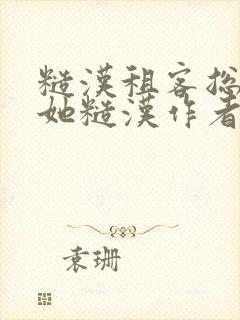 糙漢租客総
她糙漢作者
袁珊